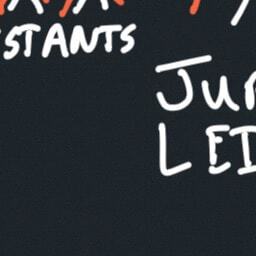 STANTS
Jur
LEI